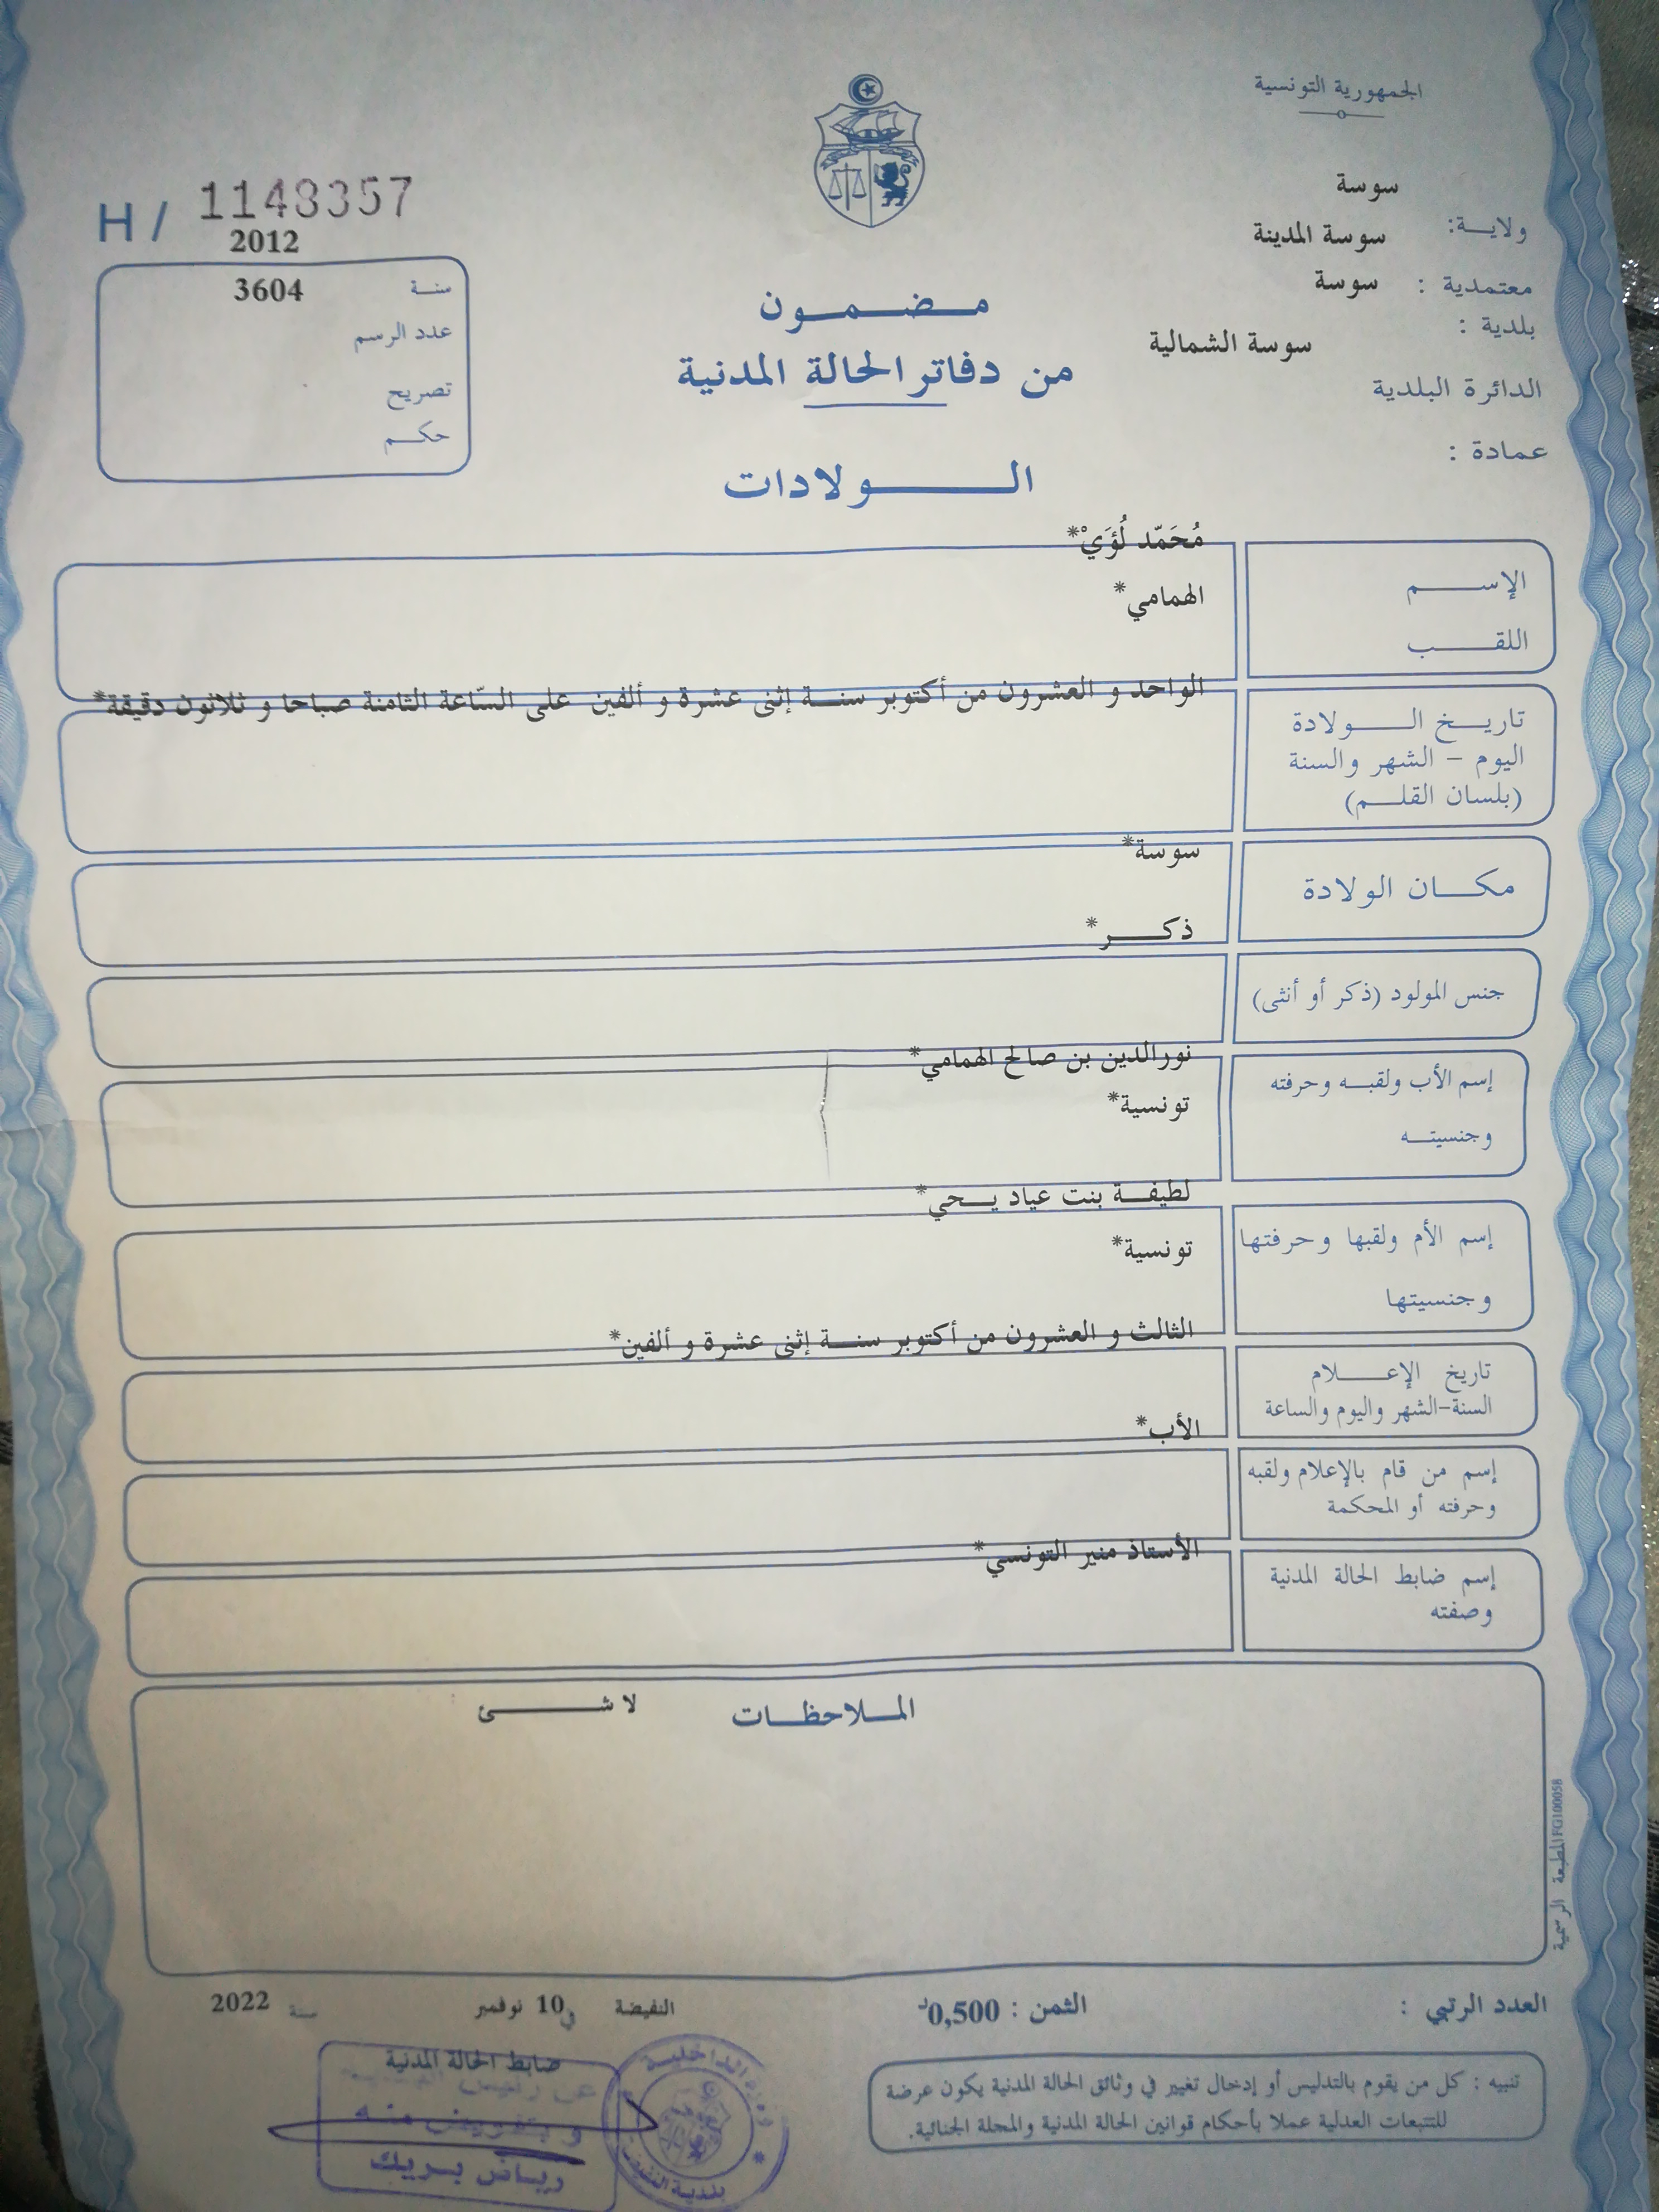 الجمهورية التونسية
سوسة
ولايـــة:
سوسة المدينة
معتمدية :
سوسة
بلدية :
سوسة الشمالية
الدائرة البلدية
عمادة :
H / 1148357
2012
سنـة
3604
عدد الرسم
تصريح
حكـــم
مـــضـــمـــون
من دفاتر الحالة المدنية
الـــــــولادات
مُحَمّد لُؤَيْ*
الإســـــم
الهمامي*
اللقـــــب
الواحد و العشرون من أكتوبر سنـــة إثنى عشرة و ألفين على السّاعة الثامنة صباحا و ثلاثون دقيقة*
تاريـــخ الـــــولادة
اليوم – الشهر والسنة
(بلسان القلـــم)
سوسة*
مكـــان الولادة
ذكـــــر*
جنس المولود (ذكر أو أنثى)
نورالدين بن صالح الهمامي*
إسم الأب ولقبـــه وحرفته
تونسية*
وجنسيتـــه
لطيفـــة بنت عياد يـــحي*
إسم الأم ولقبها وحرفتها
تونسية*
وجنسيتها
الثالث و العشرون من أكتوبر سنـــة إثنى عشرة و ألفين*
تاريخ الإعـــــلام
السنة-الشهر واليوم والساعة
الأب*
إسم من قام بالإعلام ولقبه
وحرفته أو المحكمة
الأستاذ منير التونسي*
إسم ضابط الحالة المدنية
وصفته
المـــلاحظـــات
لا شـــــئ
المطبعة الرسمية FG100058
العدد الرتبي :
الثمن : 0,500د
النفيضة في 10 نوفمبر سنة 2022
تنبيه : كل من يقوم بالتدليس أو إدخال تغيير في وثائق الحالة المدنية يكون عرضة
للتتبعات العدلية عملا بأحكام قوانين الحالة المدنية والمجلة الجنائية.
ضابط الحالة المدنية
عن رئيس
و بتفويض منه
رياض بريك
وزارة الداخلية
بلدية النفيضة